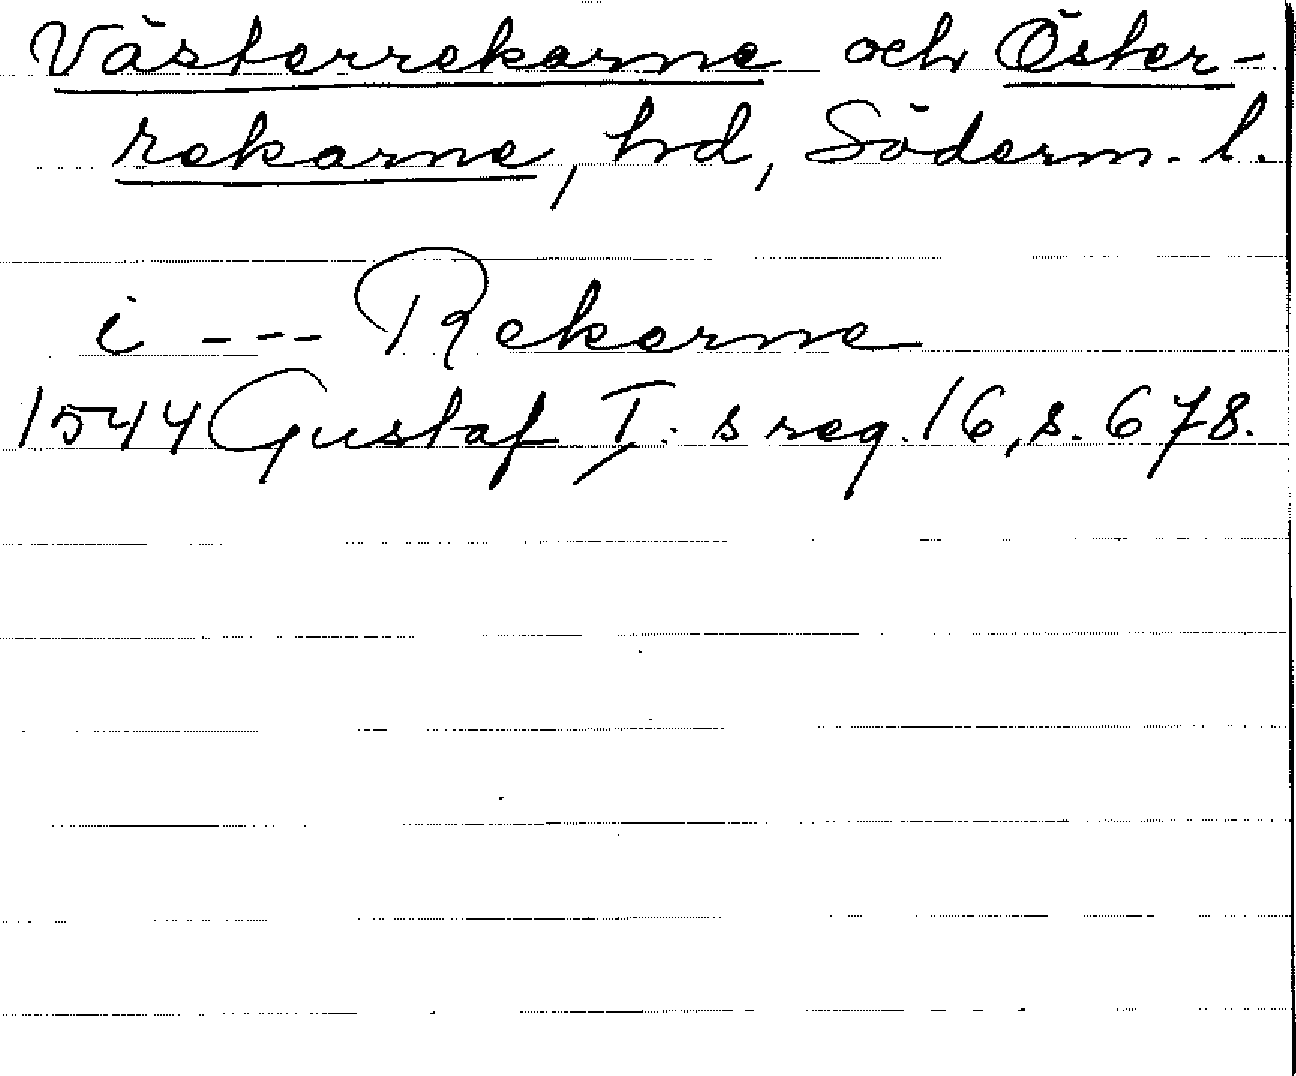 Västerrekarne och Öster-
rekarne, hd, Söderm. l.
i --- Rekarne
1544 Gustaf I:s reg. 16, s. 678.